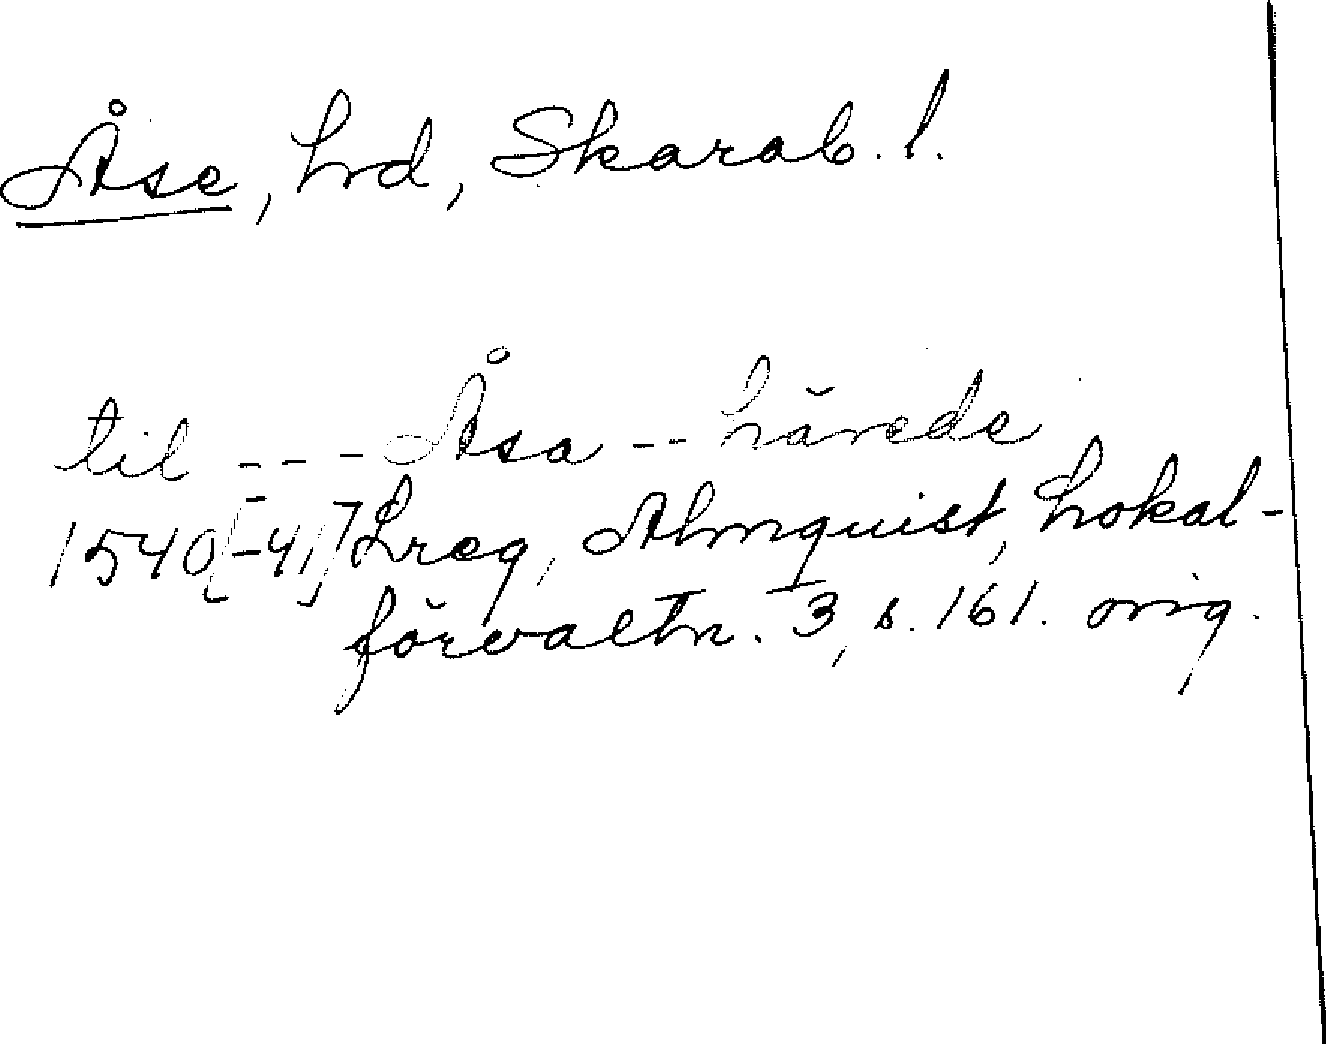 Åse, hd, Skarab. l.
til --- Åsa -- härede
1540[-41] Lreg, Almquist, Lokal-
förvaltn. 3, s. 161. orig.